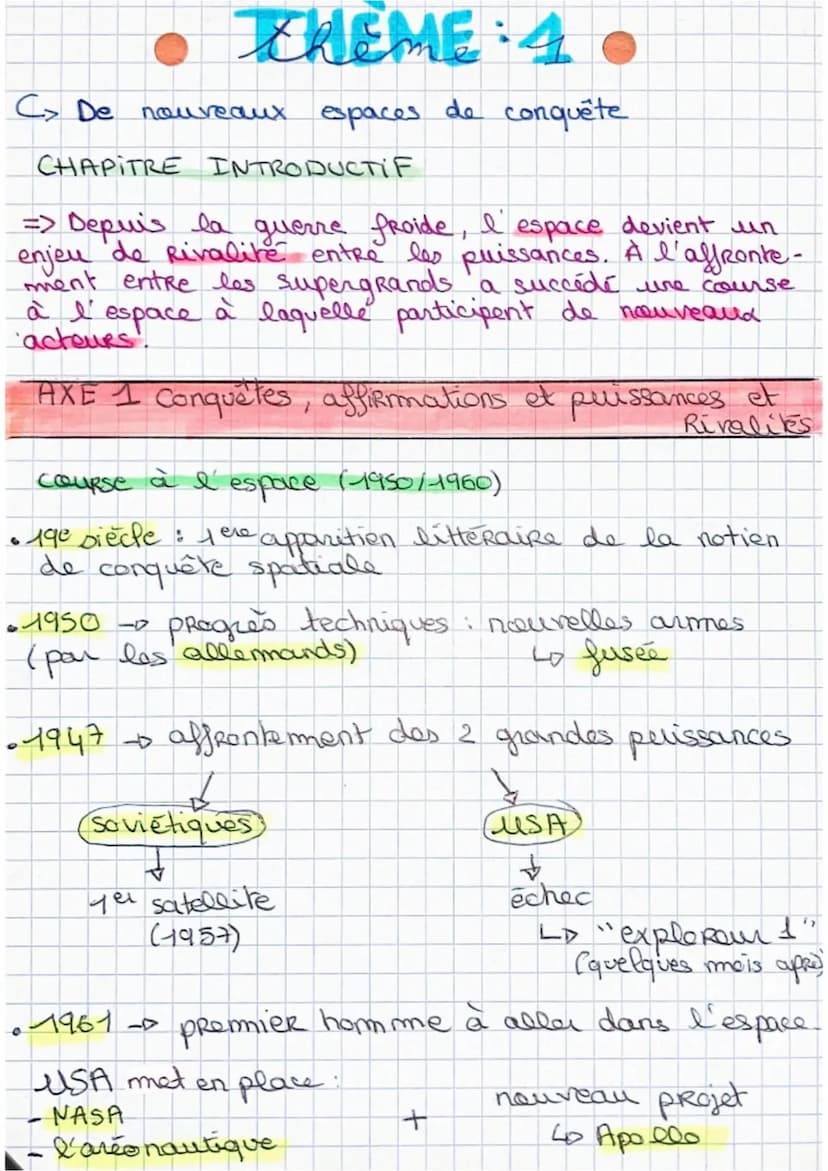 THÈME : 1
thème
↳ De nouveaux espaces de conquête
CHAPITRE INTRODUCTIF
=> Depuis la guerre froide, l'espace devient un
enjeu de Rivalité entre les puissances. À l'affronte-
ment entre les supergrands a succédé une course
à l'espace à laquelle participent de nouveaux
acteurs.
AXE 1 Conquêtes, affirmations et puissances et
Rivalités
course à l'espace (1950/1960)
• 19e siècle : 1ere apparition littéraire de la notion
de conquête spatiale
• 1950 → progrès techniques : nouvelles armes
(par les allemands) ↳ fusée
• 1947 → affrontement des 2 grandes puissances
soviétiques USA
1er satellite échec
(1957) ↳ "explorour 1"
(quelques mois après)
• 1961 → premier homme à aller dans l'espace.
USA met en place : nouveau projet
- NASA + ↳ Apollo
- l'aréonautique